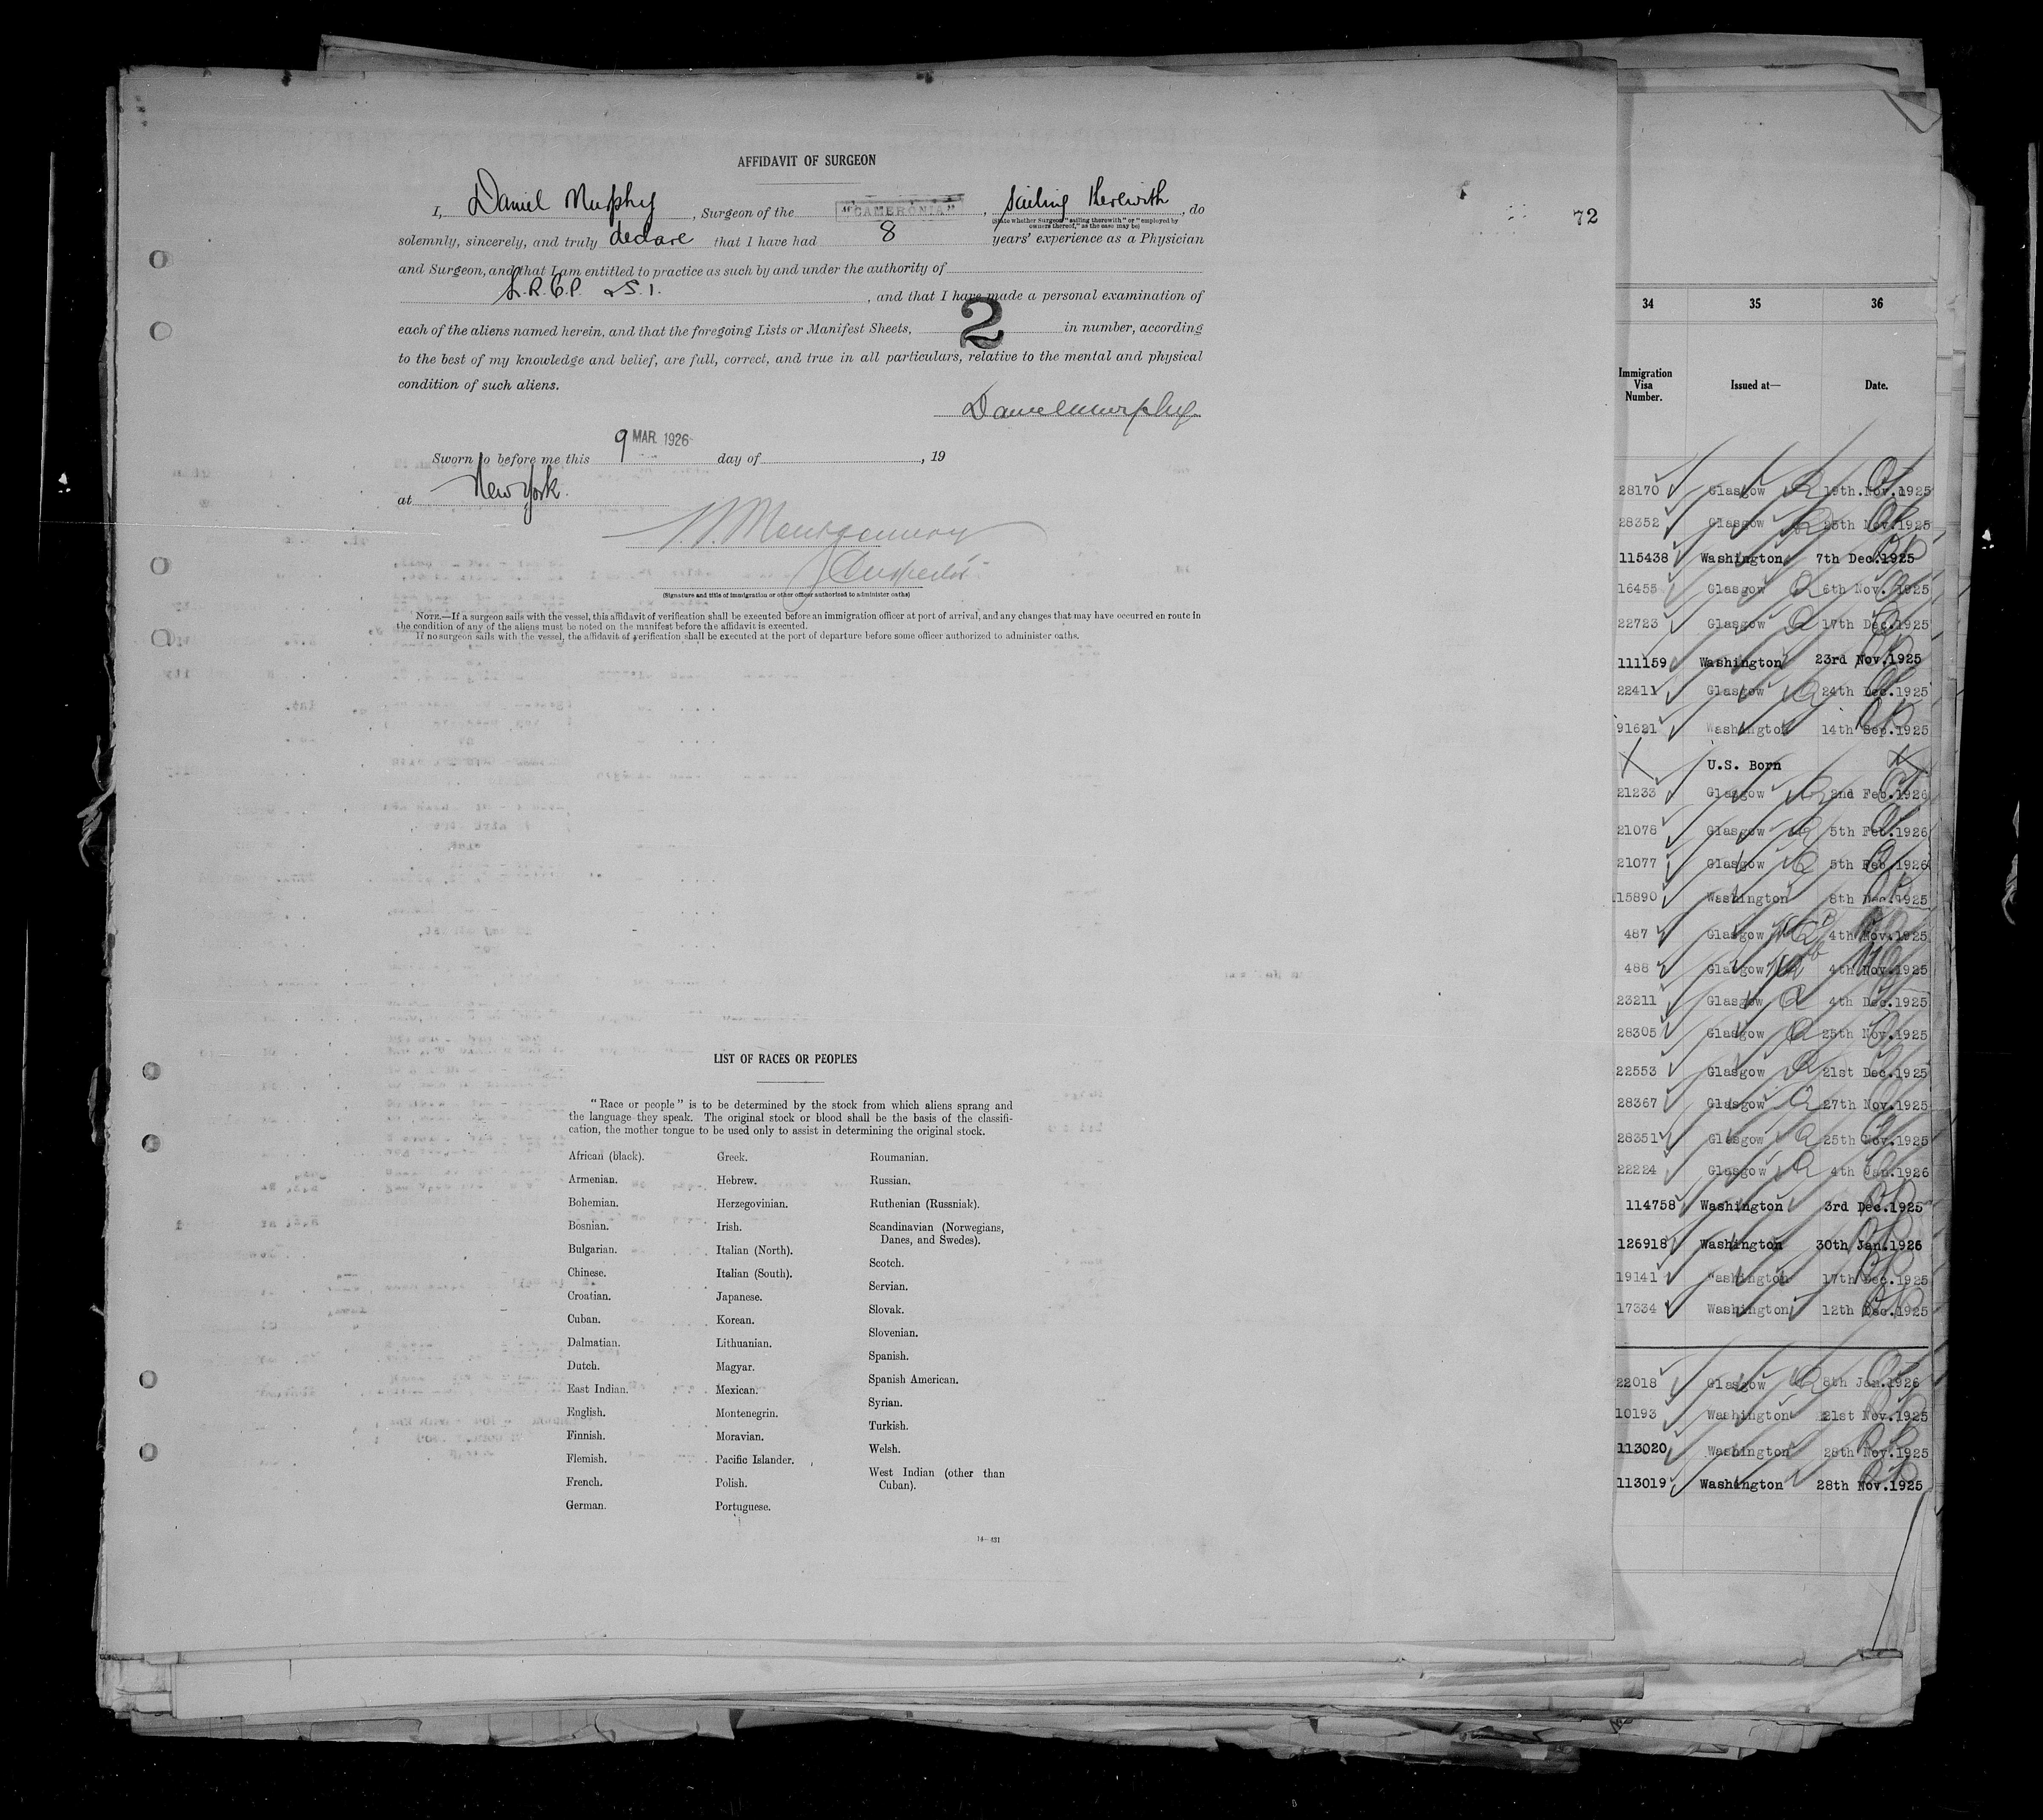 AFFIDAVIT OF SURGEON
I, Daniel Murphy, Surgeon of the "CAMERONIA", sailing therewith, do
(State whether Surgeon "sailing therewith" or "employed by
owners thereof," as the case may be)
72
solemnly, sincerely, and truly declare that I have had 8 years' experience as a Physician
and Surgeon, and that I am entitled to practice as such by and under the authority of
L.R.C.P. & S.I. , and that I have made a personal examination of
each of the aliens named herein, and that the foregoing Lists or Manifest Sheets, 2 in number, according
to the best of my knowledge and belief, are full, correct, and true in all particulars, relative to the mental and physical
condition of such aliens.
Daniel Murphy
Sworn to before me this 9 MAR 1926 day of , 19
at New York.
Montgomery
Inspector
(Signature and title of immigration or other officer authorized to administer oaths)
NOTE.—If a surgeon sails with the vessel, this affidavit of verification shall be executed before an immigration officer at port of arrival, and any changes that may have occurred en route in
the condition of any of the aliens must be noted on the manifest before the affidavit is executed.
If no surgeon sails with the vessel, the affidavit of verification shall be executed at the port of departure before some officer authorized to administer oaths.
LIST OF RACES OR PEOPLES
"Race or people" is to be determined by the stock from which aliens sprang and
the language they speak. The original stock or blood shall be the basis of the classifi-
cation, the mother tongue to be used only to assist in determining the original stock.
African (black).
Armenian.
Bohemian.
Bosnian.
Bulgarian.
Chinese.
Croatian.
Cuban.
Dalmatian.
Dutch.
East Indian.
English.
Finnish.
Flemish.
French.
German.
Greek.
Hebrew.
Herzegovinian.
Irish.
Italian (North).
Italian (South).
Japanese.
Korean.
Lithuanian.
Magyar.
Mexican.
Montenegrin.
Moravian.
Pacific Islander.
Polish.
Portuguese.
Roumanian.
Russian.
Ruthenian (Russniak).
Scandinavian (Norwegians,
Danes, and Swedes).
Scotch.
Servian.
Slovak.
Slovenian.
Spanish.
Spanish American.
Syrian.
Turkish.
Welsh.
West Indian (other than
Cuban).
14—431
34 35 36
Immigration
Visa
Number.
Issued at—
Date.
28170 Glasgow 19th.Nov.1925
28352 Glasgow 25th Nov.1925
115438 Washington 7th Dec.1925
16455 Glasgow 6th Nov.1925
22723 Glasgow 17th Dec.1925
111159 Washington 23rd Nov.1925
22411 Glasgow 24th Dec.1925
91621 Washington 14th Sep.1925
X U.S. Born X
21233 Glasgow 2nd Feb.1926
21078 Glasgow 5th Feb.1926
21077 Glasgow 5th Feb.1926
115890 Washington 8th Dec.1925
487 Glasgow 4th Nov.1925
488 Glasgow 4th Nov.1925
23211 Glasgow 4th Dec.1925
28305 Glasgow 25th Nov.1925
22553 Glasgow 21st Dec.1925
28367 Glasgow 27th Nov.1925
28351 Glasgow 25th Nov.1925
22224 Glasgow 4th Jan.1926
114758 Washington 3rd Dec.1925
126918 Washington 30th Jan.1926
19141 Washington 17th Dec.1925
17334 Washington 12th Dec.1925
22018 Glasgow 8th Jan.1926
10193 Washington 21st Nov.1925
113020 Washington 28th Nov.1925
113019 Washington 28th Nov.1925